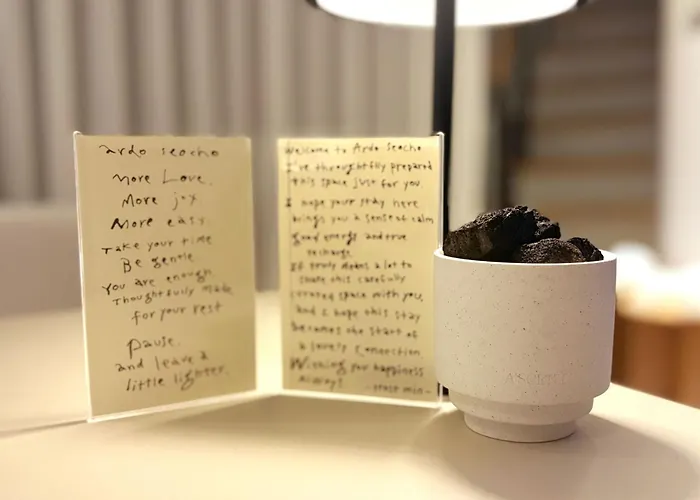 ardo seocho
More Love.
More joy
More easy.
Take your time
Be gentle
You are enough
Thoughtfully made
for your rest
pause.
and leave a
little lighter.
Welcome to Ardo Seocho
I've throughtfully prepared
this space just for you
I hope your stay here
brings you a sense of calm
good energy and true
recharge.
It truly means a lot to
share this carefully
curated space with you,
and I hope this stay
becomes the start of
a lovely connection.
Wishing you happiness
always!
-Host min-